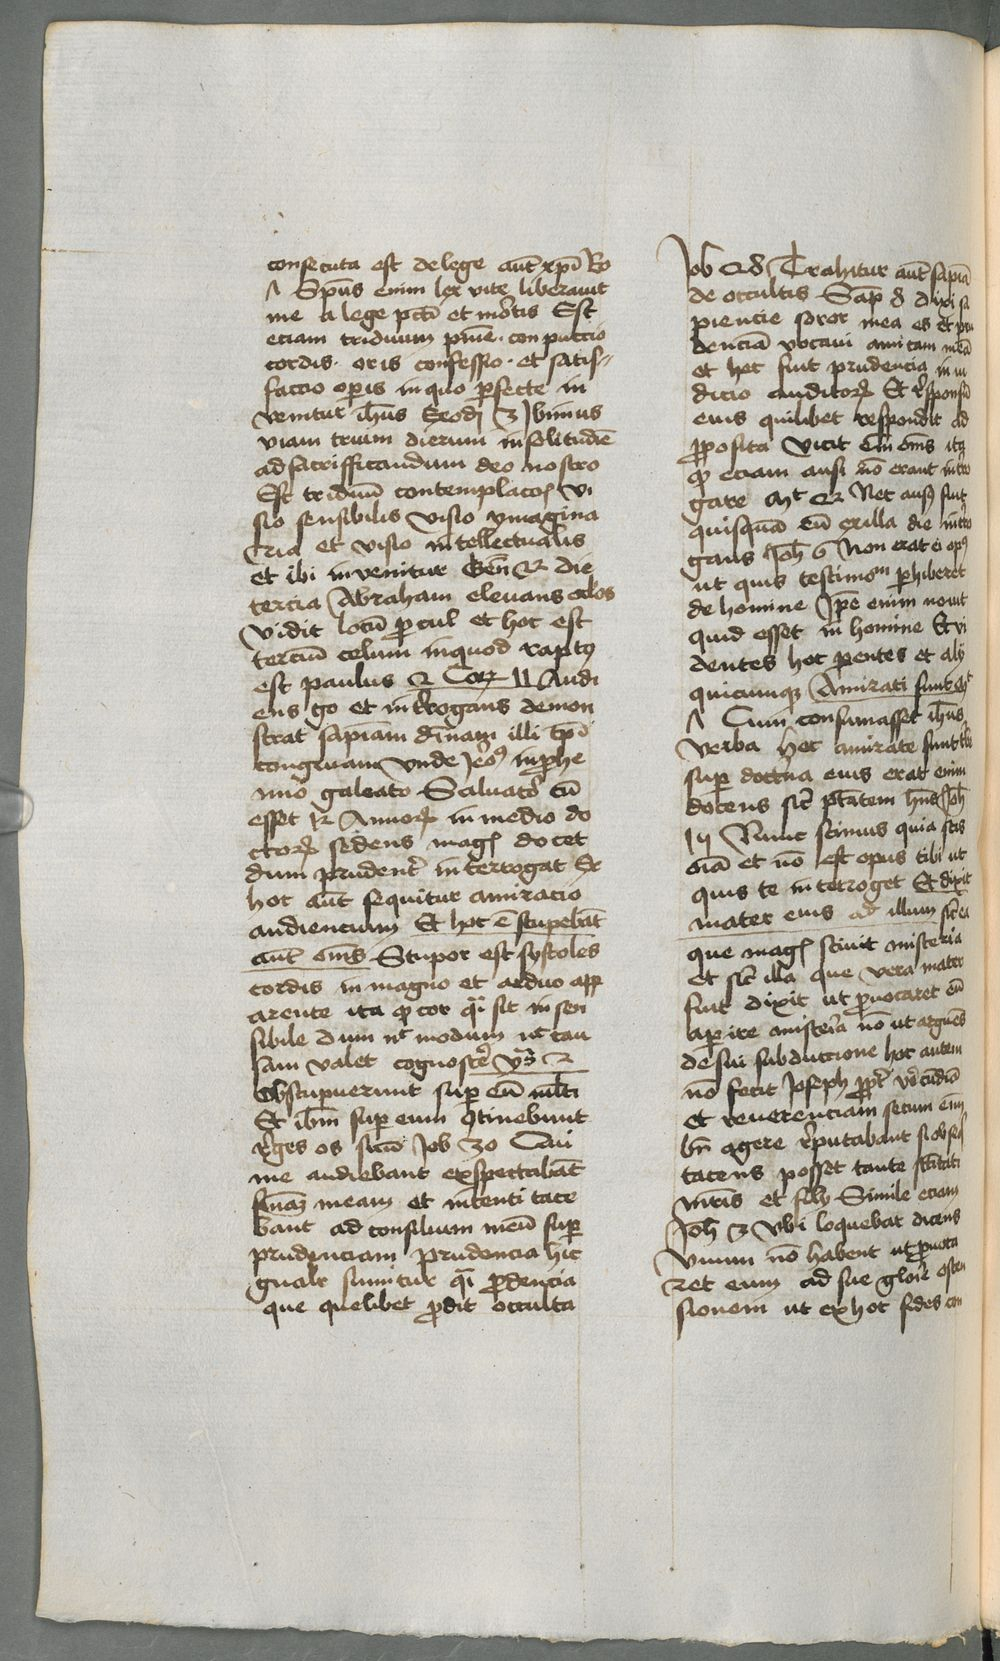 consecuta est de lege aut xpi Ro
Λ Spūs enim lex vite liberauit
me a lege pcti et mortis Est
eciam triduum pnie · conpuccio
cordis · oris confessio · et satis-
faccio operis in quo perfecte in
venitur ihūs Exodi 3 Ibimus
viam trium dierum in solitudinē
ad sacrifficandum deo nostro
Est triduū contemplacōis vi
sio sensibilis visio ymagina
ria et visio intellectualis
et ibi invenitur Gen 22 die
tercia Abraham elevans oclos
vidit locū procul et hoc est
terciū celum in quod raptus
est paulus 2 Cor 11 Audi
ens go et introgans demon
strat sapiam diuinam illi tpi
congruam vnde Jeroꝰ in prohe
mio galeato Saluator cū
esset 12 Annorum in medio do
ctorum sedens magis docet
dum prudenter interrogat Ex
hoc aut sequitur amiracio
audiencium Et hoc ē stupebāt
aut omēs Stupor est systoles
cordis in magno et arduo app
arente ita quod cor qi sit insen
sibile dum nec modum nec cau
sam valet cognoscere
Obstupuerunt super eū multi
Et ibm super eum continebunt
reges os suū Job Qui
me audiebant exspectabāt
sniam meam et intenti tace
bant ad consilium meū super
prudenciam Prudencia hic
gnalr sumitur qi prodencia
que quelibet prodit occulta
Job 28 Trahitur aut sapiā
de occultis Sap 8 dixi sa
piencie soror mea es et pru
denciā vocaui amicam meā
et hec fuit prudencia in iu
dicio auditorum Et responsū
eius quilibet respondit ad
proposita vicit em omēs ita
quod eciam ausi nō erant intro
gare Mt 22 Nec ausus fuit
quisquā eū ex illa die intro
gare Joh Non erat ei opus
ut quis testimom perhiberet
de homine Ipe enim nouit
quid esset in homine Et vi
dentes hoc parentes et alij
quicumque Amirati sunt Mt
Λ Cum consumasset ihūs
verba hec amirate sunt tbe
super doctrīa eius erat enim
docens sicut ptatem hūs Joh
Nunc scimus quia scis
oīa et nō est opus tibi ut
quis te interroget Et dixit
mater eius ad illum sic ea
que magis sciuit misteria
et sic illa que vera mater
fuit dixit ut prouocaret eū
aperire misteria nō ut arguēs
de sui subduccione hoc autem
nō fecit Joseph propter verecundiā
et reuerenciam secum em
bn agere reputabant si obseqs
tacens posset tante sctitati
mtris et filij Simile eciam
Joh 3 vbi loquebat dicens
vinum nō habent ut prouoca
ret eum ad sue glorie osten
sionem ut ex hoc fides con